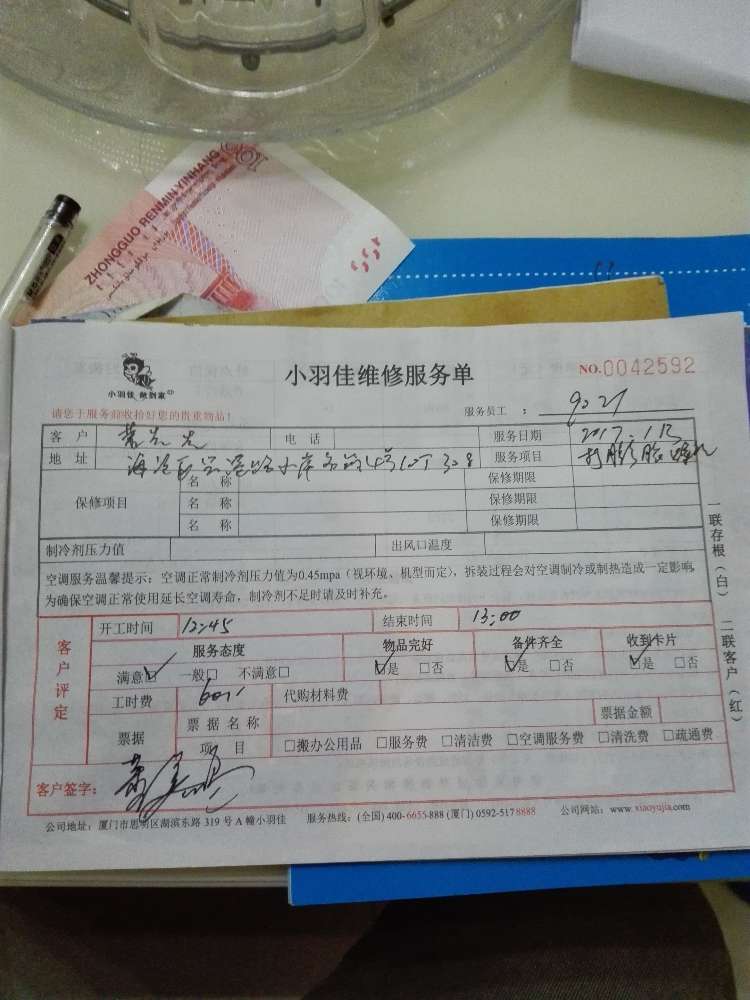 100
ZHONGGUO RENMIN YINHANG
小羽佳 敢到家
小羽佳维修服务单
NO.0042592
请您于服务前收拾好您的贵重物品！
服务员工 ： 9027
客 户
电 话
服务日期 2017.1.13
地 址
服务项目 打膨胀螺
保修项目
名 称
保修期限
名 称
保修期限
名 称
保修期限
制冷剂压力值
出风口温度
空调服务温馨提示：空调正常制冷剂压力值为0.45mpa（视环境、机型而定），拆装过程会对空调制冷或制热造成一定影响，
为确保空调正常使用延长空调寿命，制冷剂不足时请及时补充。
一联存根（白） 二联客户（红）
客户评定
开工时间 12:45
结束时间 13:00
服务态度
物品完好
备件齐全
收到卡片
满意☑ 一般□ 不满意□
☑是 □否
☑是 □否
☑是 □否
工时费 60
代购材料费
票据
票 据 名 称
票据金额
项 目
□搬办公用品 □服务费 □清洁费 □空调服务费 □清洗费 □疏通费
客户签字：
公司地址：厦门市思明区湖滨东路 319 号 A 幢小羽佳 服务热线：(全国) 400-6655-888 (厦门) 0592-5178888 公司网站：www.xiaoyujia.com